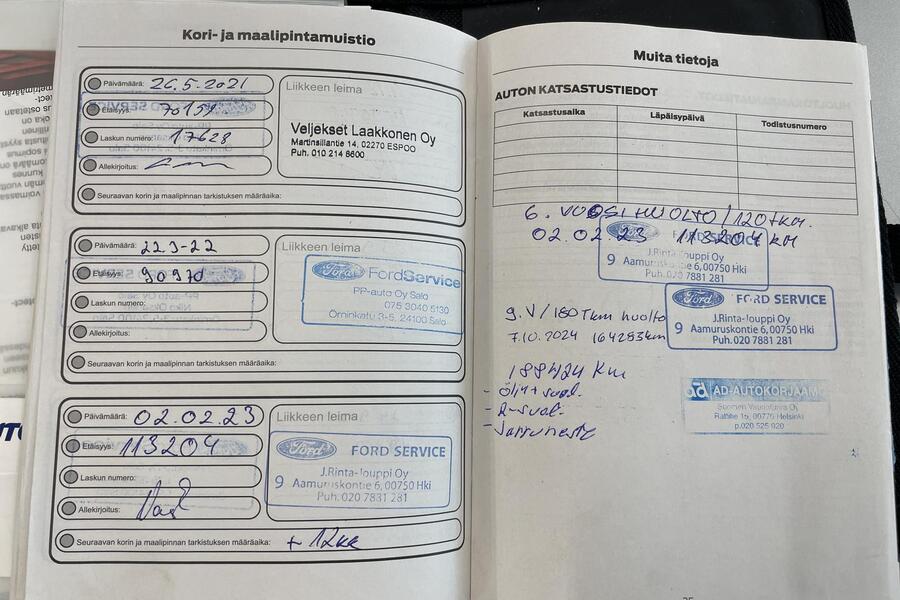 Kori- ja maalipintamuistio
Päivämäärä: 26.5.2021
Etäisyys: 70159
Laskun numero: 17628
Allekirjoitus:
Seuraavan korin ja maalipinnan tarkistuksen määräaika:
Liikkeen leima
Veljekset Laakkonen Oy
Martinsillantie 14, 02270 ESPOO
Puh. 010 214 8600
Päivämäärä: 22.3-22
Etäisyys: 90970
Laskun numero:
Allekirjoitus:
Seuraavan korin ja maalipinnan tarkistuksen määräaika:
Liikkeen leima
Ford FordService
PP-auto Oy Salo
075 3040 5130
Örninkatu 3-5, 24100 Salo
Päivämäärä: 02.02.23
Etäisyys: 113204
Laskun numero:
Allekirjoitus:
Seuraavan korin ja maalipinnan tarkistuksen määräaika: + 12kk
Liikkeen leima
Ford FORD SERVICE
J.Rinta-Jouppi Oy
9 Aamuruskontie 6, 00750 Hki
Puh. 020 7831 281
Muita tietoja
AUTON KATSASTUSTIEDOT
Katsastusaika Läpäisypäivä Todistusnumero
6. VUOSIHUOLTO / 120tkm
02.02.23 113204 KM
J.Rinta-Jouppi Oy
9 Aamuruskontie 6, 00750 Hki
Puh. 020 7881 281
9. V/180Tkm huolto
7.10.2024 164283km
Ford FORD SERVICE
J.Rinta-Jouppi Oy
9 Aamuruskontie 6, 00750 Hki
Puh. 020 7881 281
188424 Km
- Öljyt+ suod.
- R-suod.
- Jarruneste
ad AD-AUTOKORJAAMO
Suomen Vaunuhuolto Oy
00770 Helsinki
p.020 525 020